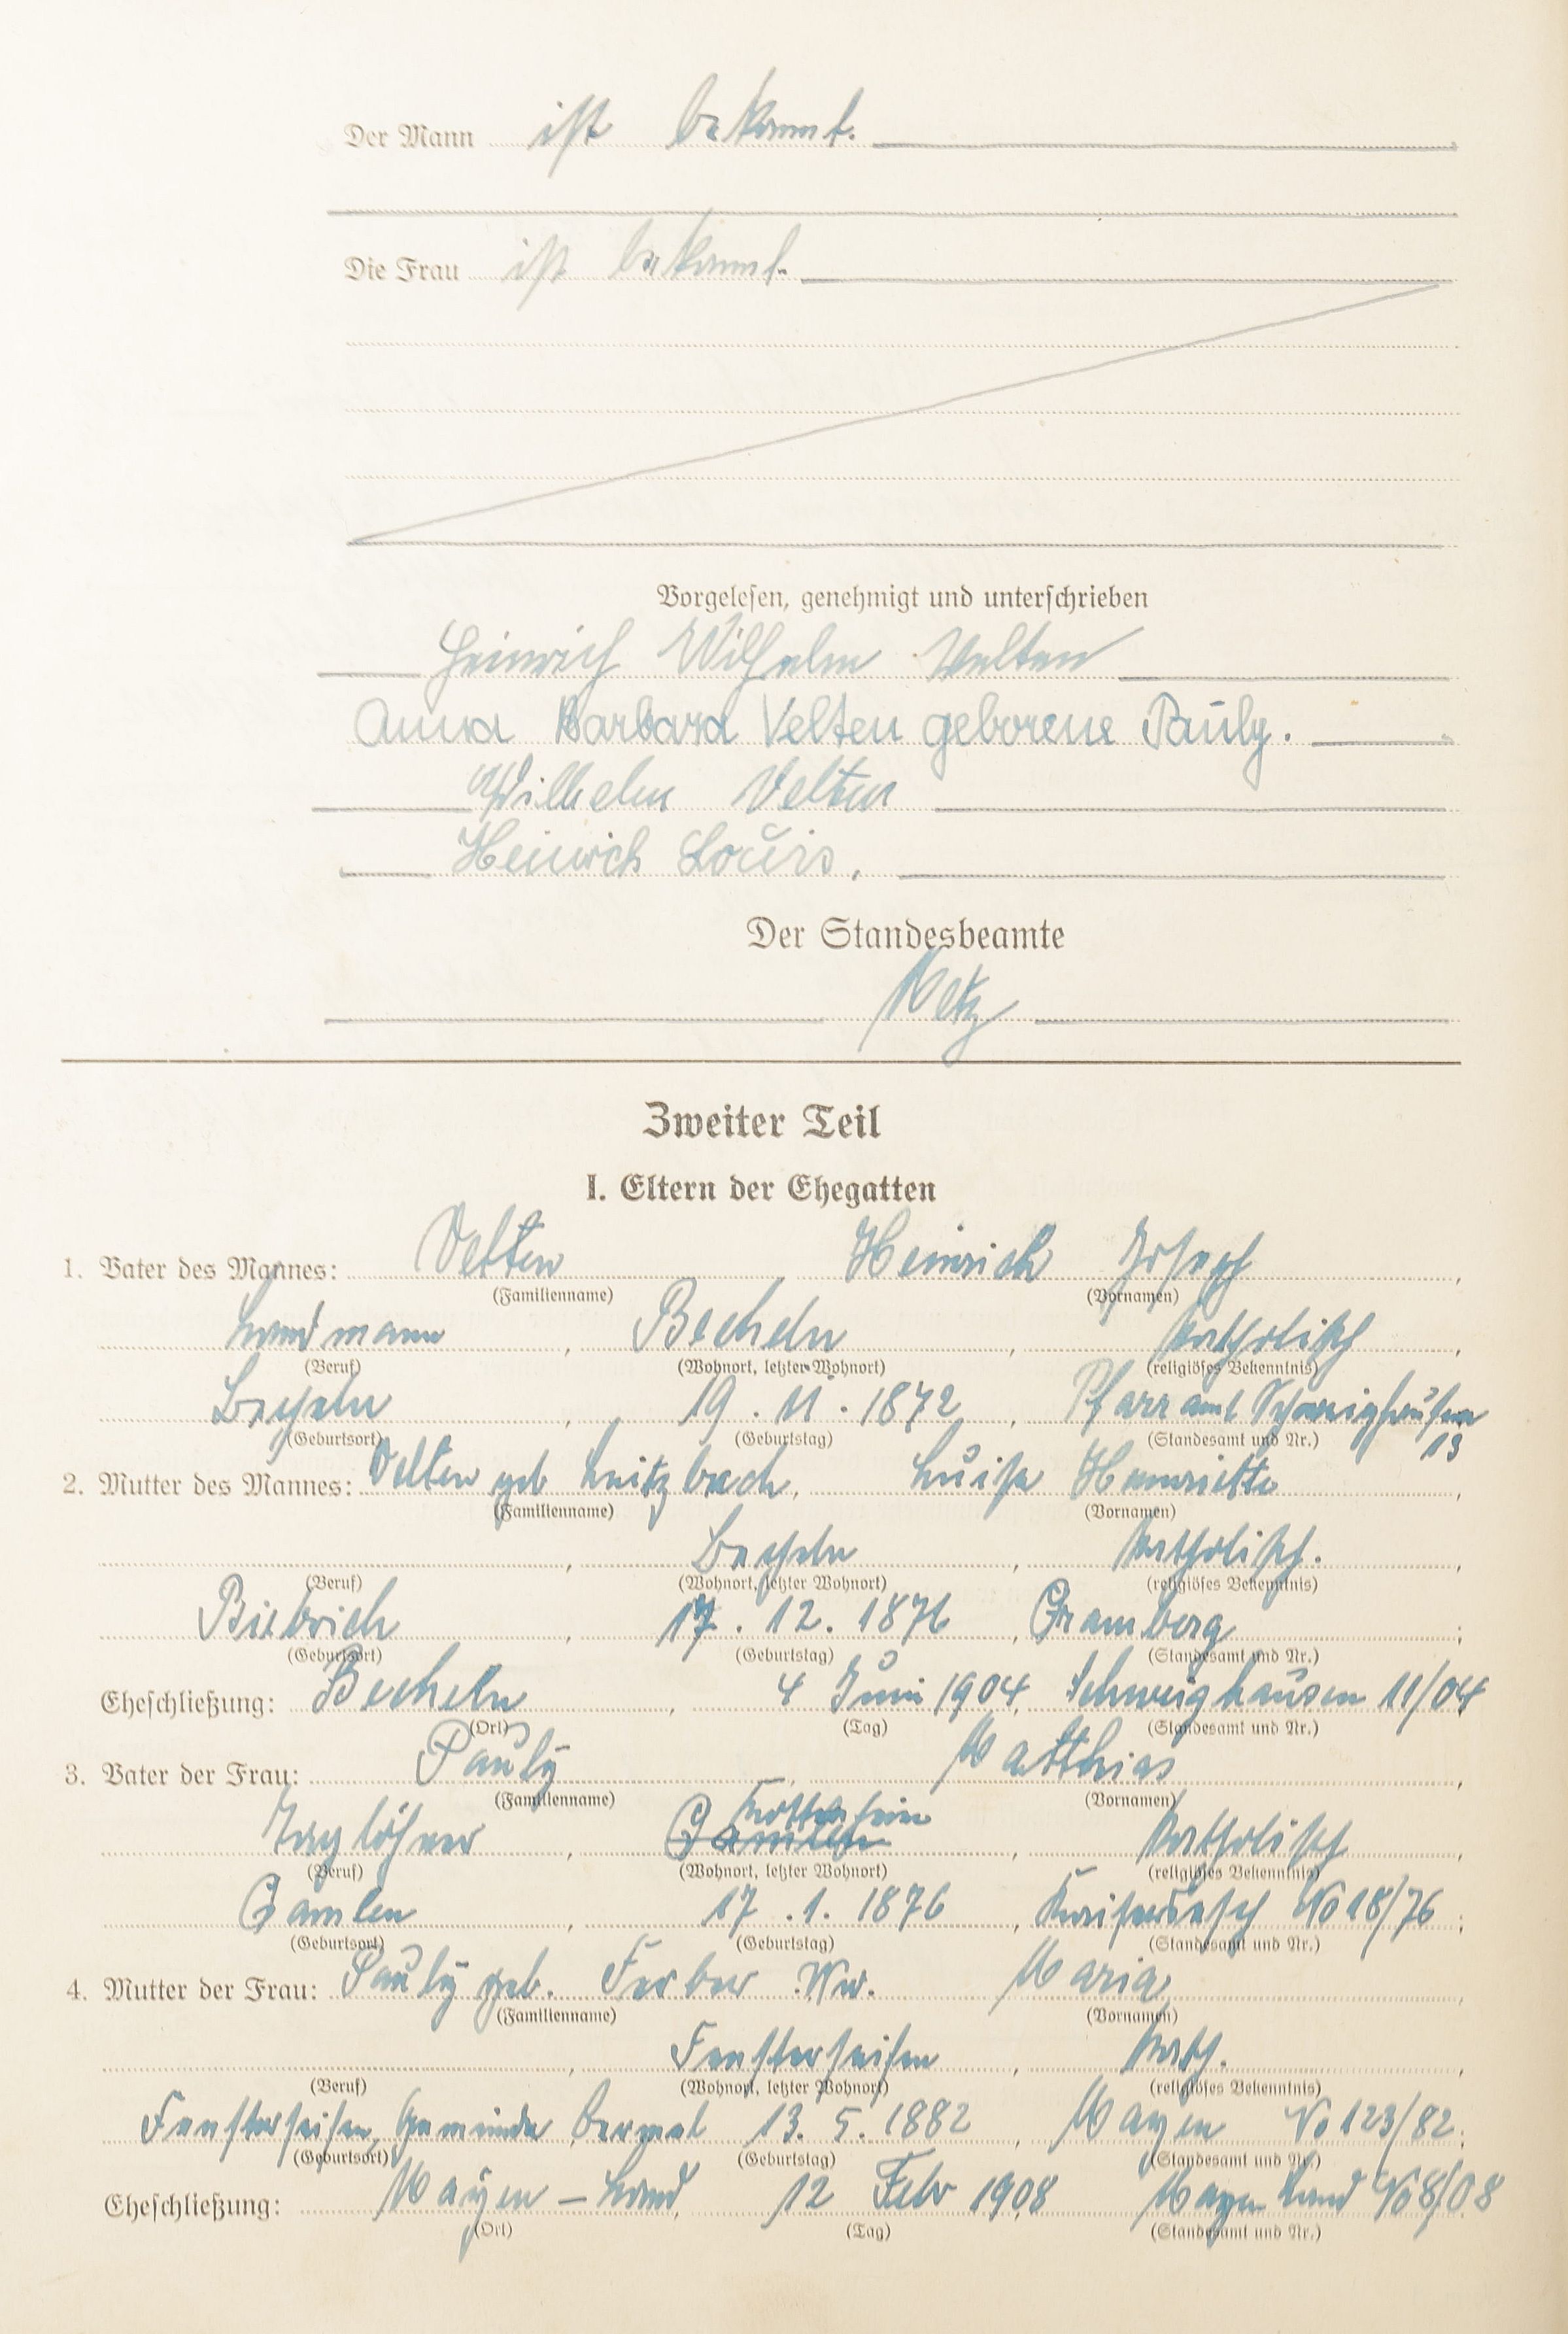 Der Mann ist bekannt.
Die Frau ist bekannt.
Vorgelesen, genehmigt und unterschrieben
Heinrich Wilhelm Velten
Anna Barbara Velten geborene Pauly.
Wilhelm Velten
Heinrich Louis,
Der Standesbeamte
Metz
Zweiter Teil
I. Eltern der Ehegatten
1. Vater des Mannes: Velten Heinrich Josef,
(Familienname) (Vornamen)
Landmann, Becheln, katholisch,
(Beruf) (Wohnort, letzter Wohnort) (religiöses Bekenntnis)
Becheln, 19. 11. 1872, Pfarramt Schweighausen
(Geburtsort) (Geburtstag) (Standesamt und Nr.) 13
2. Mutter des Mannes: Velten geb, Luise Henriette,
(Familienname) (Vornamen)
, Becheln, katholisch.,
(Beruf) (Wohnort, letzter Wohnort) (religiöses Bekenntnis)
Biebrich, 17. 12. 1876, Cramberg;
(Geburtsort) (Geburtstag) (Standesamt und Nr.)
Eheschließung: Becheln, 4 Juni 1904, Schweighausen 11/04
(Ort) (Tag) (Standesamt und Nr.)
3. Vater der Frau: Pauly, Matthias,
(Familienname) (Vornamen)
Tagelöhner, Gamlen, katholisch,
(Beruf) (Wohnort, letzter Wohnort) (religiöses Bekenntnis)
Gamlen, 17. 1. 1876, Kaisersesch No 18/76;
(Geburtsort) (Geburtstag) (Standesamt und Nr.)
4. Mutter der Frau: Pauly geb. Ferber Ww. Maria,
(Familienname) (Vornamen)
, Fensterseifen, kath.,
(Beruf) (Wohnort, letzter Wohnort) (religiöses Bekenntnis)
Fensterseifen, Gemeinde Bermel 13. 5. 1882, Mayen No 123/82;
(Geburtsort) (Geburtstag) (Standesamt und Nr.)
Eheschließung: Mayen – Land, 12 Febr 1908 Mayen Land No 8/08
(Ort) (Tag) (Standesamt und Nr.)